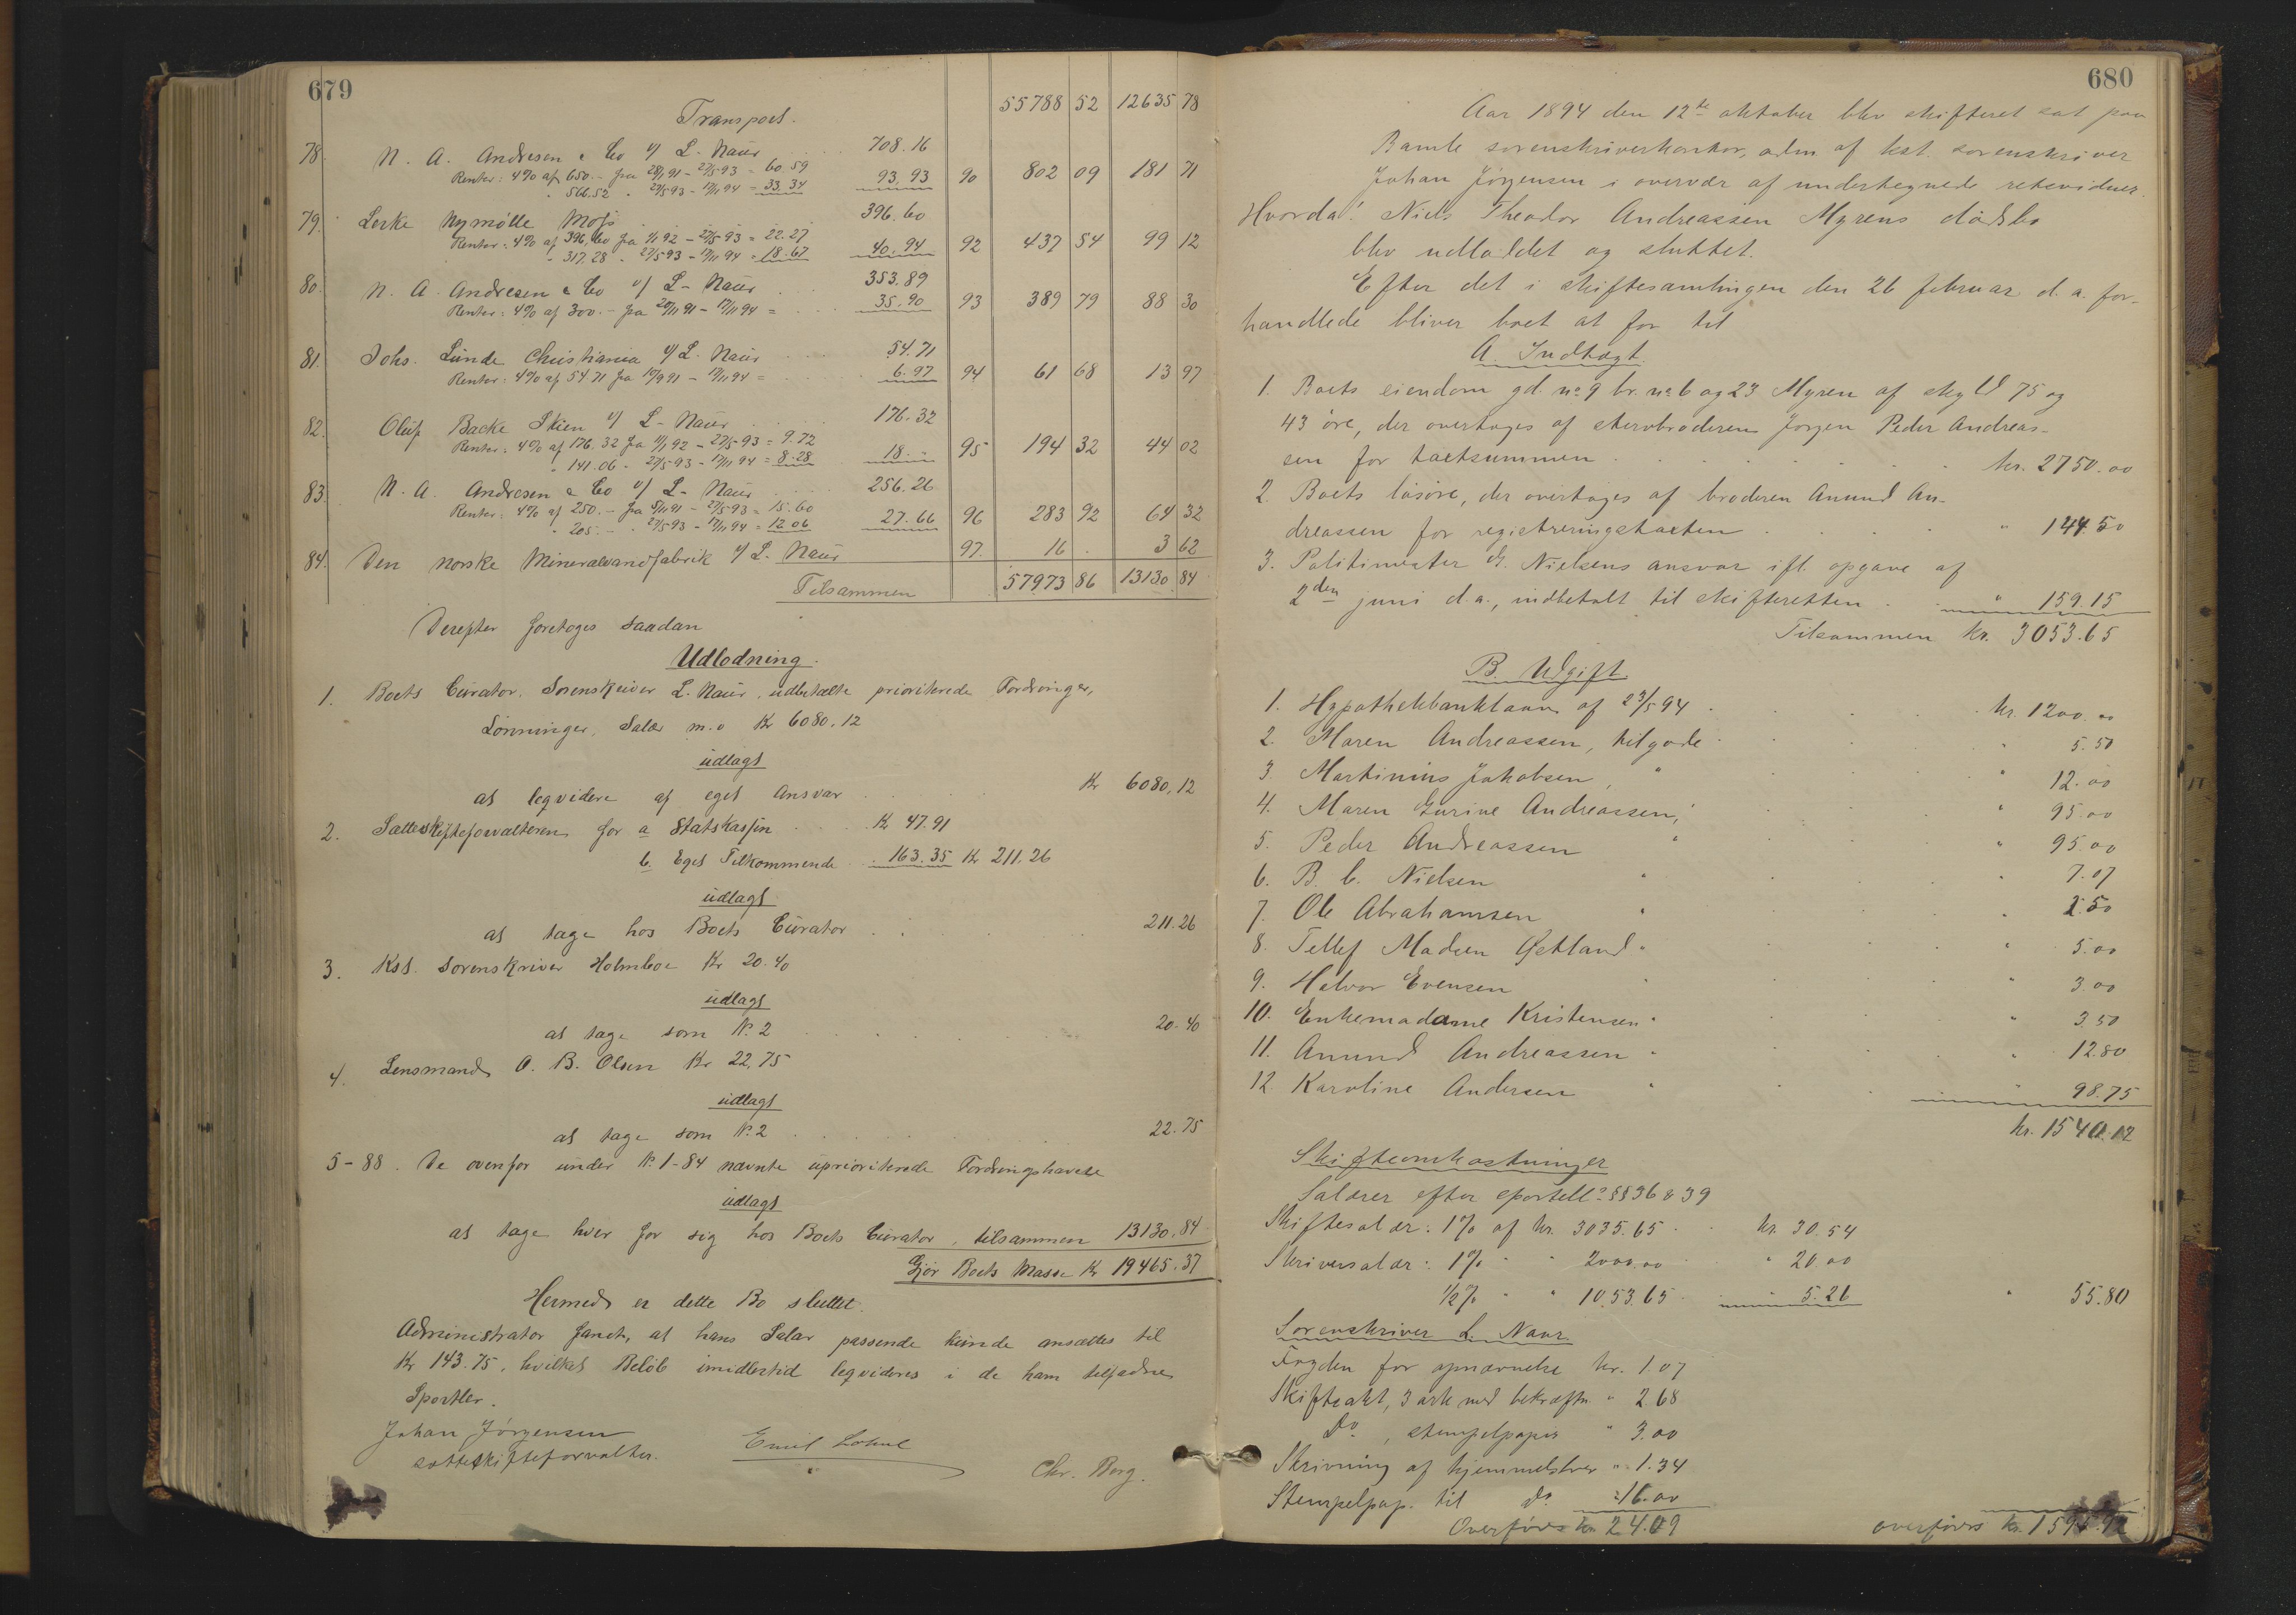 679
Transport. 55788 52 12635 78
78. N. A. Andresen & Co v/ L. Naur 708.16
Renter: 4% af 650.- fra 28/1 91 - 27/5 93 = 60.59
" 566.52 " 27/5 93 - 17/11 94 = 33.34 93.93 90 802 09 181 71
79. Lerke Nymölle Moss 396.60
Renter: 4% af 396,60 fra 1/1 92 - 27/5 93 = 22.27
" 317.28 " 27/5 93 - 17/11 94 = 18.67 40.94 92 437 54 99 12
80. N. A. Andresen & Co v/ L. Naur 353.89
Renter: 4% af 300.- fra 20/11 91 - 17/11 94 = 35.90 93 389 79 88 30
81. Johs. Lunde Christiania v/ L. Naur 54.71
Renter: 4% af 54 71 fra 17/9 91 - 17/11 94 = 6.97 94 61 68 13 97
82. Oluf Backe Skien v/ L. Naur 176.32
Renter: 4% af 176.32 fra 1/1 92 - 27/5 93 = 9.72
" 141.06 - 27/5 93 - 17/11 94 = 8.28 18.- 95 194 32 44 02
83. N. A. Andresen & Co v/ L. Naur 256.26
Renter: 4% af 250.- fra 5/11 91 - 27/5 93 = 15.60
" 205.- " 27/5 93 - 17/11 94 = 12 06 27.66 96 283 92 64 32
84. Den norske Mineralvandfabrik v/ L. Naur 97. 16 . 3 62
Tilsammen 57973 86 13130 84
Derefter foretoges saadan
Udlodning.
1. Boets Curator, Sorenskriver L. Naur, udbetalte prioriterede Fordringer,
Lønninger, Salær m. v Kr 6080,12
udlagt
at leqvidere af eget Ansvar Kr 6080,12
2. Sætteskifteforvalteren for a Statskassen Kr 47.91
b. Eget Tilkommende 163.35 Kr 211.26
udlagt
at tage hos Boets Curator 211.26
3. Kst. Sorenskriver Holmboe Kr 20.40
udlagt
at tage som N. 2 20.40
4. Lensmand O. B. Olsen Kr 22,75
udlagt
at tage som N. 2 22.75
5-88. De ovenfor under N. 1-84 nævnte uprioriterede Fordringshavere
udlagt
at tage hver for sig hos Boets Curator, tilsammen 13130.84
Gjør Boets Masse Kr 19465.37
Hermed er dette Bo sluttet.
Administrator fandt, at hans Salær passende kunde ansættes til
Kr 143.75, hvilket Beløb imidlertid leqvideres i de ham tilfaldne
Sportler.
Johan Jörgensen
sætteskifteforvalter.
Emil
Chr. Berg.
680
Aar 1894 den 12te oktober blev skifteret sat paa
Bamle sorenskriverkontor, adm. af kst. sorenskriver
Johan Jörgensen i overvær af undertegnede retsvidner.
Hvorda! Niels Theodor Andreassen Myrens dödsbo
blev udloddet og sluttet.
Efter det i skiftesamlingen den 26 februar d. a. for-
handlede bliver boet at før til
A. Indtægt.
1. Boets eiendom gd. no 9 br. no 6 og 23 Myren af skyld 75 og
43 öre, der overtages af stervbroderen Jörgen Peder Andreas-
sen for taxtsummen kr. 2750.00
2. Boets lösöre, der overtages af broderen Anund An-
dreassen for registreringstaxten " 144.50
3. Politimester G. Nielsens ansvar ifl. opgave af
2den juni d. a., indbetalt til skifteretten " 159.15
Tilsammen kr. 3053.65
B. Udgift
1. Hypothekbanklaan af 23/5 94 kr. 1200.00
2. Maren Andreassen, tilgode " 5.50
3. Martinius Jakobsen, " " 12.00
4. Maren Gurine Andreassen, " " 95.00
5. Peder Andreassen " " 95.00
6. B. C. Nielsen " " 7.07
7. Ole Abrahamsen " " 2.50
8. Tellef Madsen Østland " " 5.00
9. Halvor Evensen " " 3.00
10. Enkemadame Kristensen " " 3.50
11. Anund Andreassen " " 12.80
12. Karoline Andersen " " 98.75
kr. 1540.12
Skifteomkostninger
Salærer efter sportell. §§ 36 & 39
Skiftesalær: 1% af kr. 3035.65 kr. 30.54
Skriversalær: 1% " " 2000.00 " 20.00
1/2% " " 1053.65 " 5.26 " 55.80
Sorenskriver L. Naur
Fogden for opnævnelse kr. 1.07
Skifteakt, 3 ark med bekræftn. " 2.68
Do, stempelpapir " 3.00
Skrivning af hjemmelsbrev " 1.34
Stempelpap. til Do " 16.00
Overføres kr. 24.09 overføres kr. 1595.92